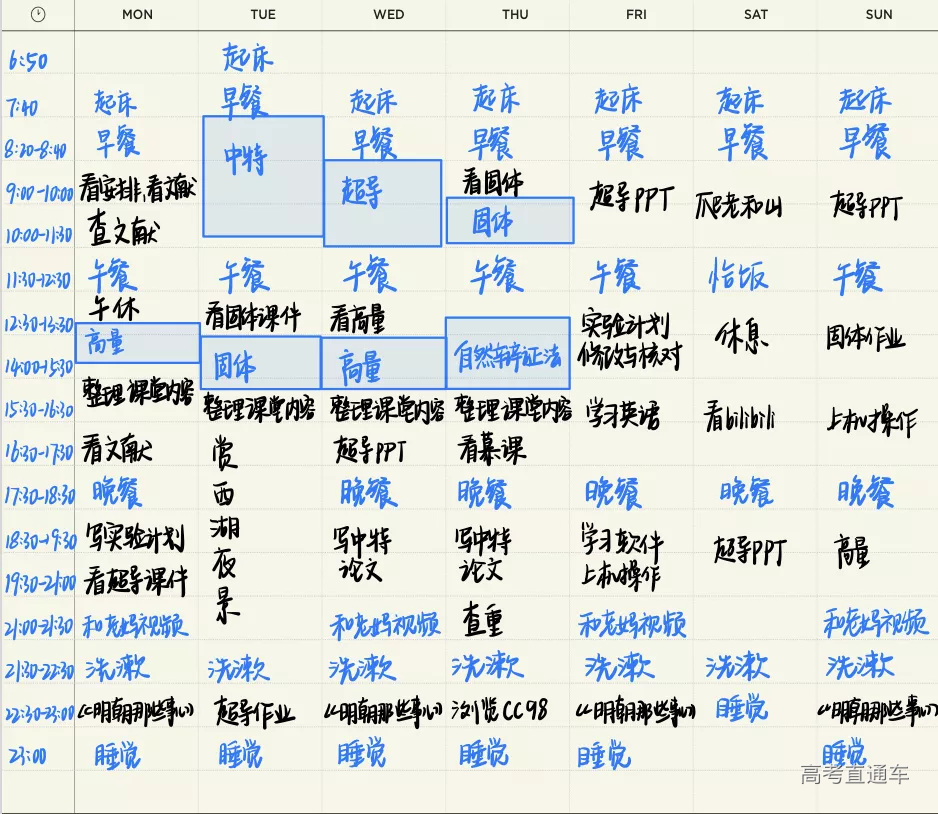 MON TUE WED THU FRI SAT SUN
6:50 起床
7:40 起床 早餐 起床 起床 起床 起床 起床
8:20-8:40 早餐 中特 早餐 早餐 早餐 早餐 早餐
9:00-10:00 看安排、看文献 超导 看固体 超导PPT 爬老和山 超导PPT
10:00-11:30 查文献 固体
11:30-12:30 午餐 午餐 午餐 午餐 午餐 恰饭 午餐
午休
12:30-13:30 看固体课件 看高量 实验计划 休息 固体作业
高量 修改与核对
14:00-15:30 固体 高量 自然辩证法
整理课堂内容
15:30-16:30 整理课堂内容 整理课堂内容 整理课堂内容 学习英语 看bilibili 上机操作
16:30-17:30 看文献 赏 超导PPT 看慕课
17:30-18:30 晚餐 西 晚餐 晚餐 晚餐 晚餐 晚餐
18:30-19:30 写实验计划 湖 写中特 写中特 学习软件 超导PPT 高量
夜 论文 论文 上机操作
19:30-21:00 看超导课件 景
21:00-21:30 和老妈视频 和老妈视频 查重 和老妈视频 和老妈视频
21:30-22:30 洗漱 洗漱 洗漱 洗漱 洗漱 洗漱 洗漱
22:30-23:00 《明朝那些事儿》 超导作业 《明朝那些事儿》 浏览CC98 《明朝那些事儿》 睡觉 《明朝那些事儿》
23:00 睡觉 睡觉 睡觉 睡觉 睡觉 睡觉
高考直通车